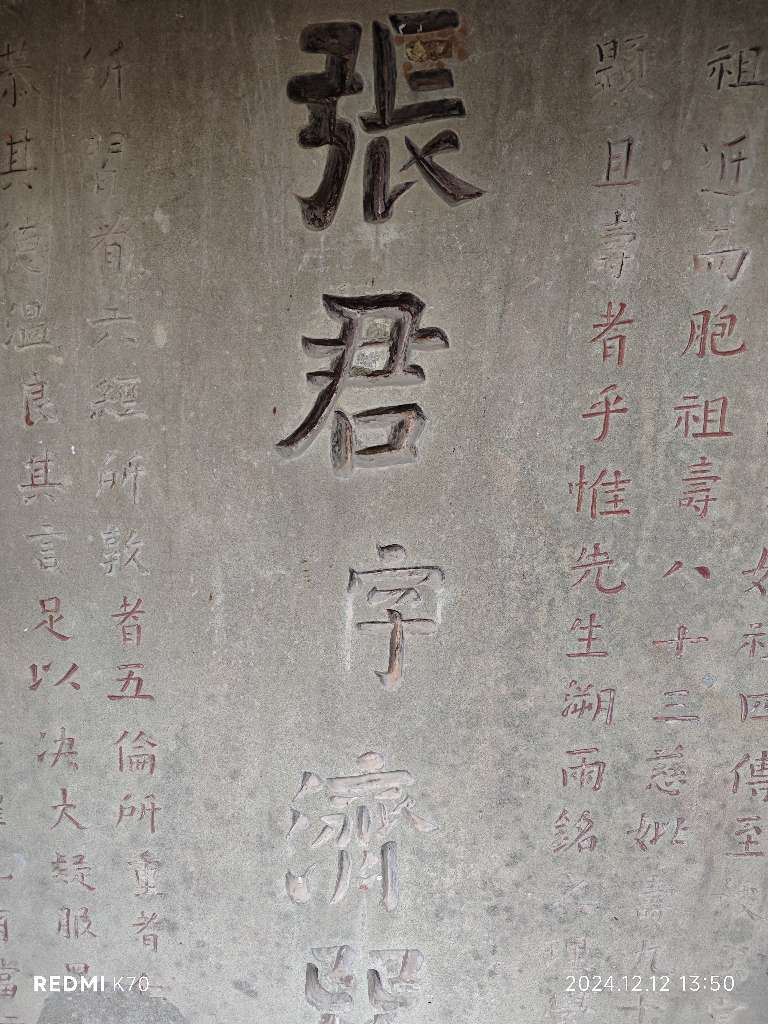 祖近而胞祖壽八十三慈妣壽九十
顯且壽者乎惟先生溯雨銘
張君字濟
所習者六經所敦者五倫所重者
恭其德溫良其言足以決大疑服
四傳至
REDMI K70
2024.12.12 13:50